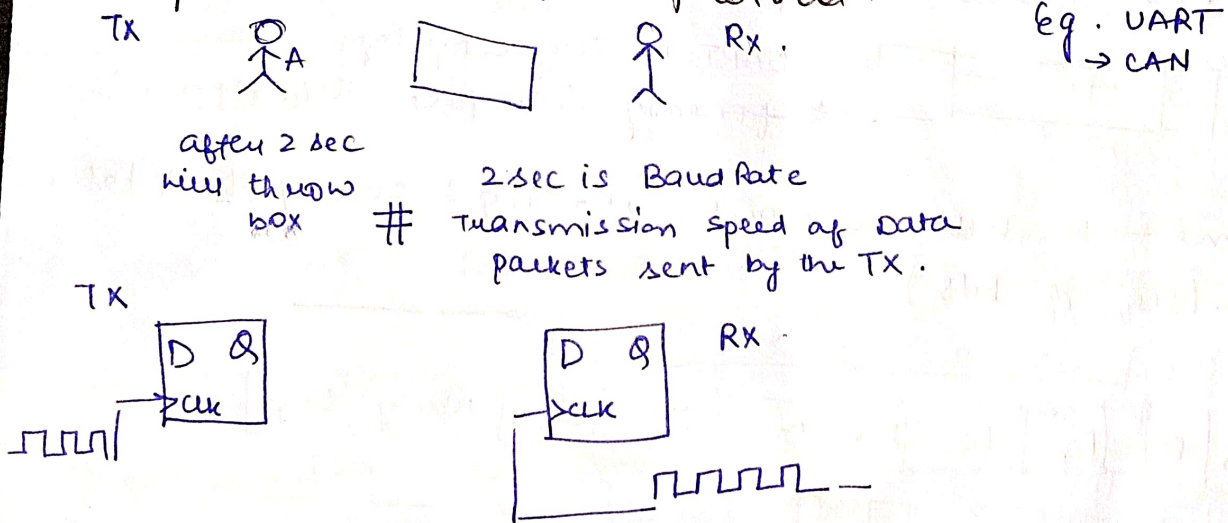 Tx
A
Rx.
Eg. UART
→ CAN
after 2 sec
will throw
box
2 sec is Baud Rate
# Transmission speed of Data
packets sent by the TX.
TX
D Q
CLK
D Q
CLK
RX